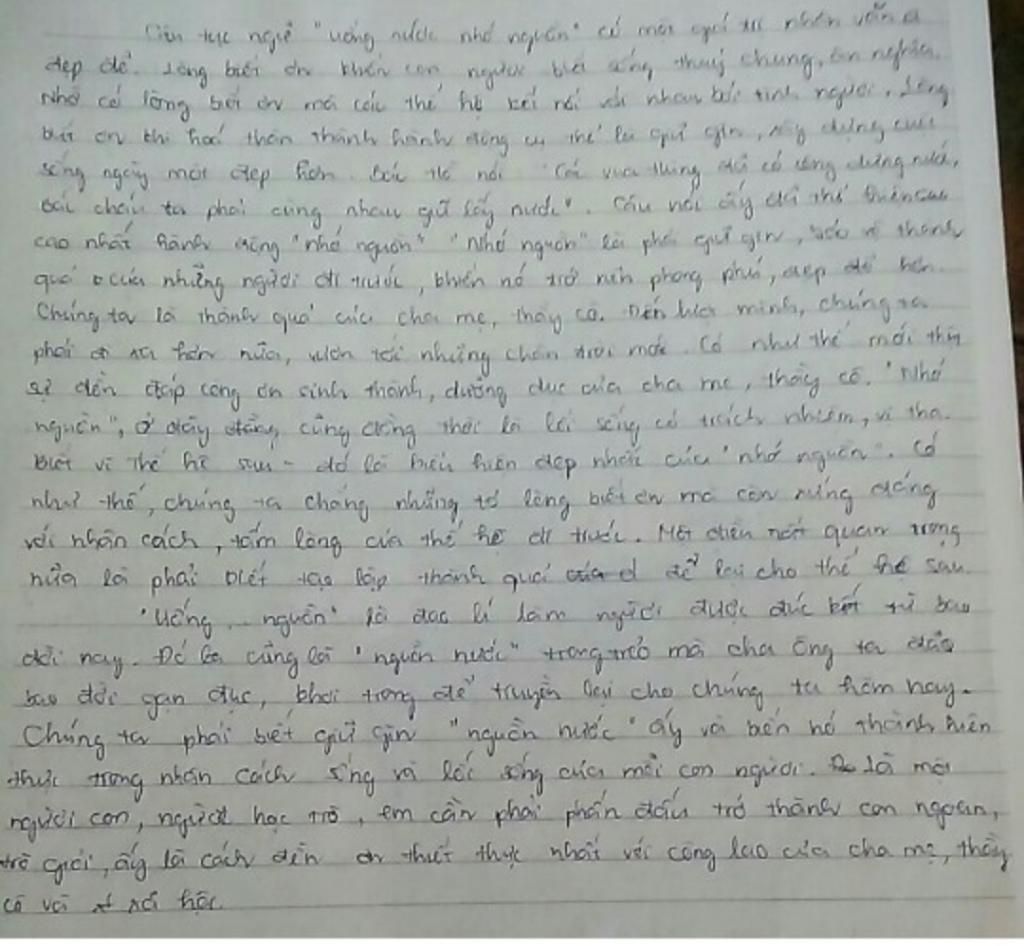 Câu tục ngữ "uống nước nhớ nguồn" có một giá trị nhân văn
đẹp đẽ. Lòng biết ơn khiến con người biết sống thuỷ chung, ân nghĩa.
Nhờ có lòng biết ơn mà các thế hệ kết nối với nhau bởi tình người. Lòng
biết ơn khi hoá thân thành hành động cụ thể là giữ gìn, xây dựng cuộc
sống ngày một đẹp hơn. Bác Hồ nói "Các vua Hùng đã có công dựng nước,
bác cháu ta phải cùng nhau giữ lấy nước". Câu nói ấy đã thể
cao nhất hành động "nhớ nguồn" "Nhớ nguồn" là phải giữ gìn, bảo vệ thành
quả của những người đi trước, khiến nó trở nên phong phú, đẹp đẽ hơn.
Chúng ta là thành quả của cha mẹ, thầy cô. Đến lượt mình, chúng ta
phải đi xa hơn nữa, vươn tới những chân trời mới. Có như thế mới thực
sự đền đáp công ơn sinh thành, dưỡng dục của cha mẹ, thầy cô. "Nhớ
nguồn", ở đây cũng đồng thời là lối sống có trách nhiệm, vị tha.
Biết vì thế hệ sau - đó là biểu hiện đẹp nhất của "nhớ nguồn". Có
như thế, chúng ta chẳng những tỏ lòng biết ơn mà còn xứng đáng
với nhân cách, tấm lòng của thế hệ đi trước. Một điều rất quan trọng
nữa là phải biết tạo lập thành quả để lại cho thế hệ sau.
"Uống... nguồn" là đạo lí làm người được đúc kết từ bao
đời nay. Đó cũng là "nguồn nước" trong trẻo mà cha ông ta đã
bao đời gạn đục, khơi trong để truyền lại cho chúng ta hôm nay.
Chúng ta phải biết giữ gìn "nguồn nước" ấy và biến nó thành hiện
thực trong nhân cách sống và lối sống của mỗi con người. Là một
người con, người học trò, em cần phải phấn đấu trở thành con ngoan,
trò giỏi, ấy là cách đền ơn thiết thực nhất với công lao của cha mẹ, thầy
cô và xã hội.